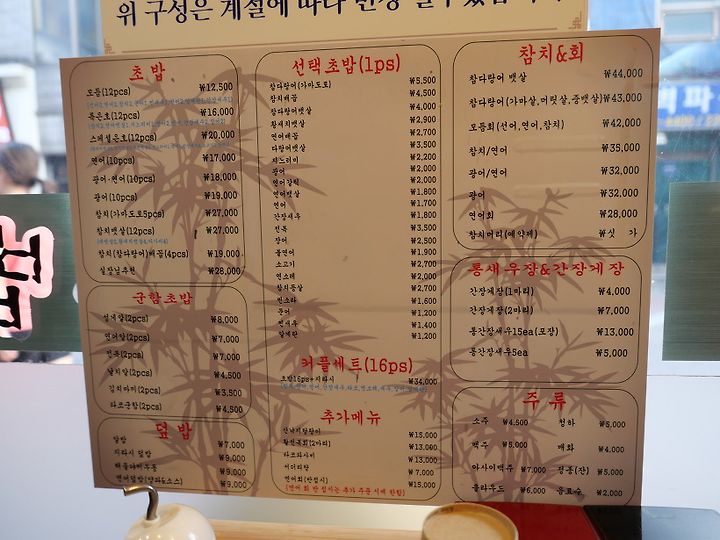 위 구성은 계절에 따라 변경 될 수 있습니다
초밥
모듬(12pcs) ₩12,500
특은초(12pcs) ₩16,000
스페셜은초(12pcs) ₩20,000
연어(10pcs) ₩17,000
광어·연어(10pcs) ₩18,000
광어(10pcs) ₩19,000
참치(가마도로5pcs) ₩27,000
참치뱃살(12pcs) ₩27,000
참치(참다랑어)배꼽(4pcs) ₩19,000
실장님추천 ₩28,000
군함초밥
성게알(2pcs) ₩8,000
연어알(2pcs) ₩7,000
전복(2pcs) ₩7,000
날치알(2pcs) ₩4,500
김치마끼(2pcs) ₩3,500
타코군함(2pcs) ₩4,500
덮밥
알밥 ₩7,000
지라시 덮밥 ₩9,000
₩9,000
연어덮밥(양파&소스) ₩9,000
선택초밥(1ps)
참다랑어(가마도로) ₩5,500
참치배꼽 ₩4,500
참다랑어뱃살 ₩4,000
황새치뱃살 ₩2,900
연어배꼽 ₩2,700
다랑어뱃살 ₩3,500
지느러미 ₩2,200
광어 ₩2,000
연어갈릭 ₩2,200
연어뱃살 ₩1,800
연어 ₩1,700
간장새우 ₩1,800
전복 ₩3,500
장어 ₩2,500
불연어 ₩1,900
소고기 ₩2,700
연소패 ₩2,000
참치등살 ₩2,700
찐소라 ₩1,600
문어 ₩1,200
찐새우 ₩1,400
계란 ₩1,200
커플세트(16ps)
초밥16ps+지라시 ₩34,000
추가메뉴
산낙기탕탕이 ₩15,000
황전복회(2마리) ₩13,000
타코와사비 ₩13,000
서더리탕 ₩7,000
연어회(반접시) ₩15,000
(연어 회 반 접시는 추가 주문 시에 한함)
참치&회
참다랑어 뱃살 ₩44,000
참다랑어(가마살,머릿살,중뱃살) ₩43,000
모듬회(선어,연어,참치) ₩42,000
참치/연어 ₩35,000
광어/연어 ₩32,000
광어 ₩32,000
연어회 ₩28,000
참치머리(예약제) ₩싯 가
통새우장&간장게장
간장게장(1마리) ₩4,000
간장게장(2마리) ₩7,000
통간장새우15ea(포장) ₩13,000
통간장새우5ea ₩5,000
주류
소주 ₩4,500 청하 ₩5,000
맥주 ₩5,000 매화 ₩4,000
아사이맥주 ₩7,000 정종(잔) ₩5,000
클라우드 ₩6,000 음료수 ₩2,000